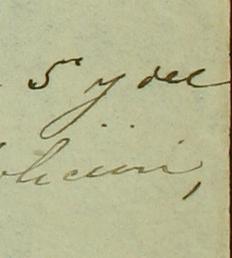 5º y del
olicion,